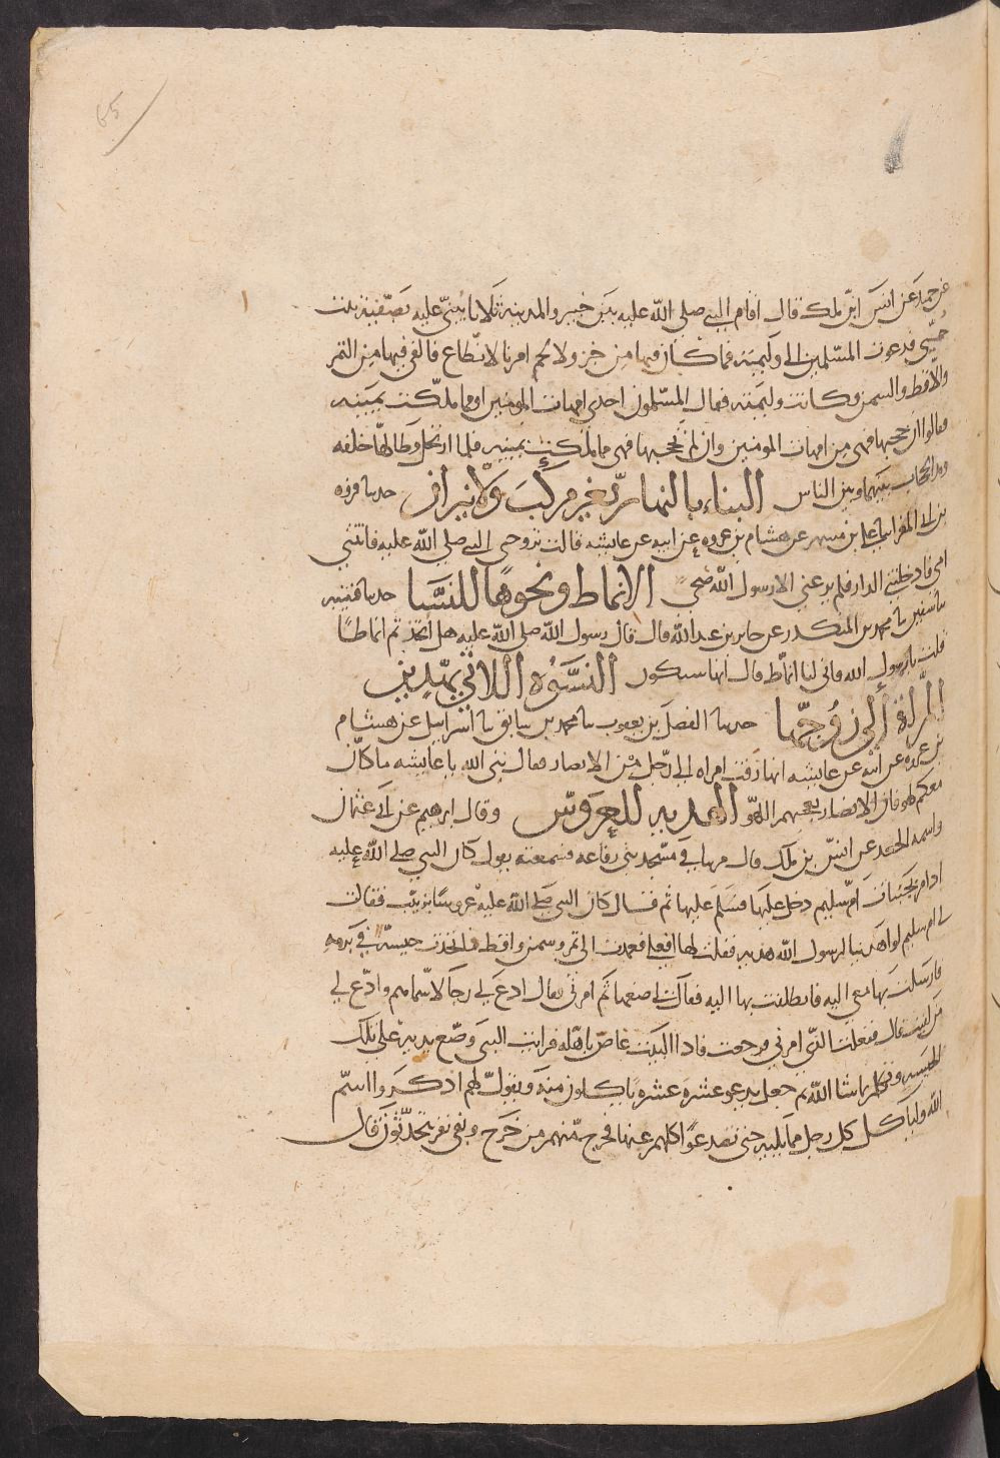 65
عن حميد عن انس ابن ملك قال اقام النبي صلى الله عليه بين خيبر والمدينة ثلاثا يبنى عليه بصفية بنت
حيي فدعوت المسلمين الى وليمته فما كان فيها من خبز ولا لحم امر بالانطاع فالقي فيها من التمر
والاقط والسمن وكانت وليمته فقال المسلمون احدى امهات المومنين او مما ملكت يمينه
فقالوا ان حجبها فهى من امهات المومنين وان لم يحجبها فهى مما ملكت يمينه فلما ارتحل وطا لها خلفه
ومد الحجاب بينها وبين الناس البناء بالنهار بغير مركب ولا نيران حدثنا فروه
بن ابى المغرا ثنا على بن مسهر عن هشام بن عروه عن ابيه عن عايشه قالت تزوجى النبي صلى الله عليه فاتتني
امي فادخلتني الدار فلم يرعني الا رسول الله ضحى الانماط ونحوها للنسا حدثنا قتيبه
ثنا سفين ثنا محمد بن المنكدر عن جابر بن عبد الله قال قال رسول الله صلى الله عليه هل اتخذتم انماطا
قلت يا رسول الله وانى لنا انماط قال انها ستكون النسوه اللاتي يهدين
المراة الى زوجها حدثنا الفضل بن يعقوب ثنا محمد بن سابق ثنا اسرائيل عن هشام
بن عروه عن ابيه عن عايشه انها زفت امراه الى رجل من الانصار فقال نبى الله يا عايشه ما كان
معكم لهو فان الانصار يعجبهم اللهو الهديه للعروس وقال ابرهيم عن ابى عثمان
واسمه الجعد عن انس بن ملك قال مر بنا في مسجد بني رفاعه فسمعته يقول كان النبي صلى الله عليه
اذا مر بجنبات ام سليم دخل عليها فسلم عليها ثم قال كان النبي صلى الله عليه عروسا بزينب فقالت
لي ام سليم لو اهدينا لرسول الله هديه فقلت لها افعلي فعمدت الى تمر وسمن واقط فاتخذت حيسة في برمه
فارسلت بها معي اليه فانطلقت بها اليه فقال لي ضعها ثم امرني فقال ادع لي رجالا سماهم وادع لي
من لقيت قال ففعلت الذي امرني فرجعت فاذا البيت غاص باهله فرايت النبي وضع يديه على تلك
الحيسه وتكلم بما شا الله ثم جعل يدعو عشره عشره ياكلون منه ويقول لهم اذكروا اسم
الله ولياكل كل رجل مما يليه حتى تصدعوا كلهم عنها فخرج منهم من خرج وبقى نفر يتحدثون قال